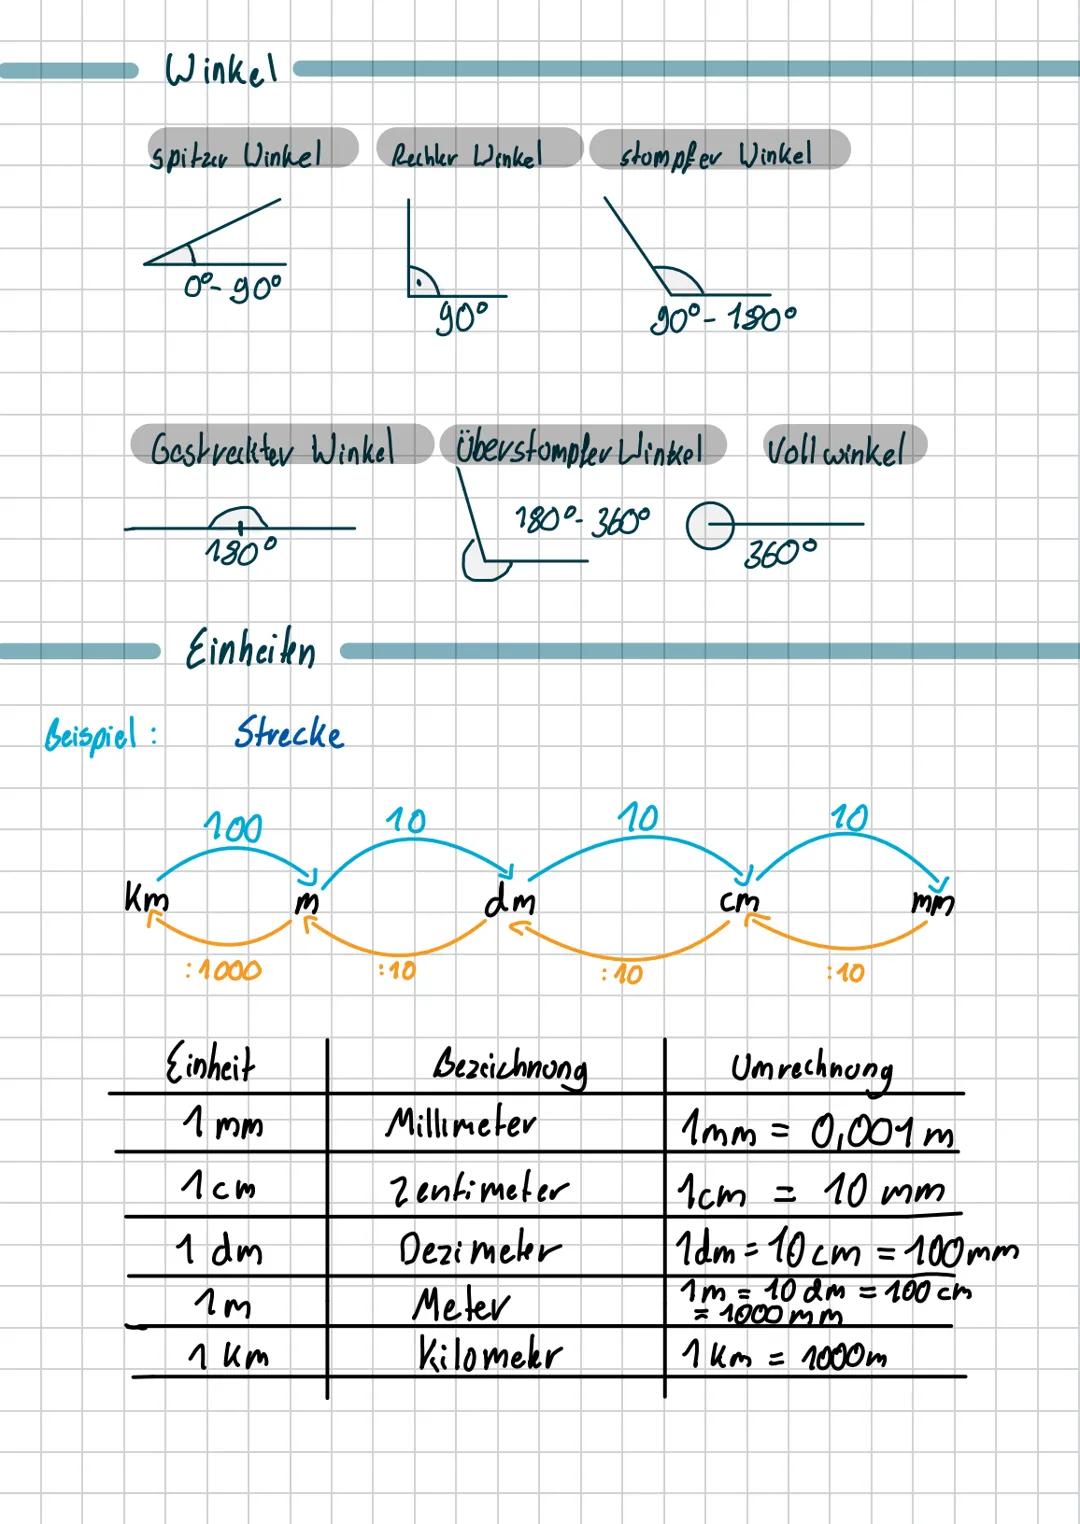 Winkel
spitzer Winkel Rechter Winkel stumpfer Winkel
0°-90° 90° 90°-180°
Gestreckter Winkel Überstumpfer Winkel Vollwinkel
180° 180°-360° 360°
Einheiten
Beispiel: Strecke
100 10 10 10
Km m dm cm mm
:1000 :10 :10 :10
Einheit Bezeichnung Umrechnung
1 mm Millimeter 1mm = 0,001 m
1 cm Zentimeter 1cm = 10 mm
1 dm Dezimeter 1dm = 10 cm = 100mm
1 m Meter 1m = 10 dm = 100 cm
= 1000 mm
1 Km Kilometer 1 Km = 1000m